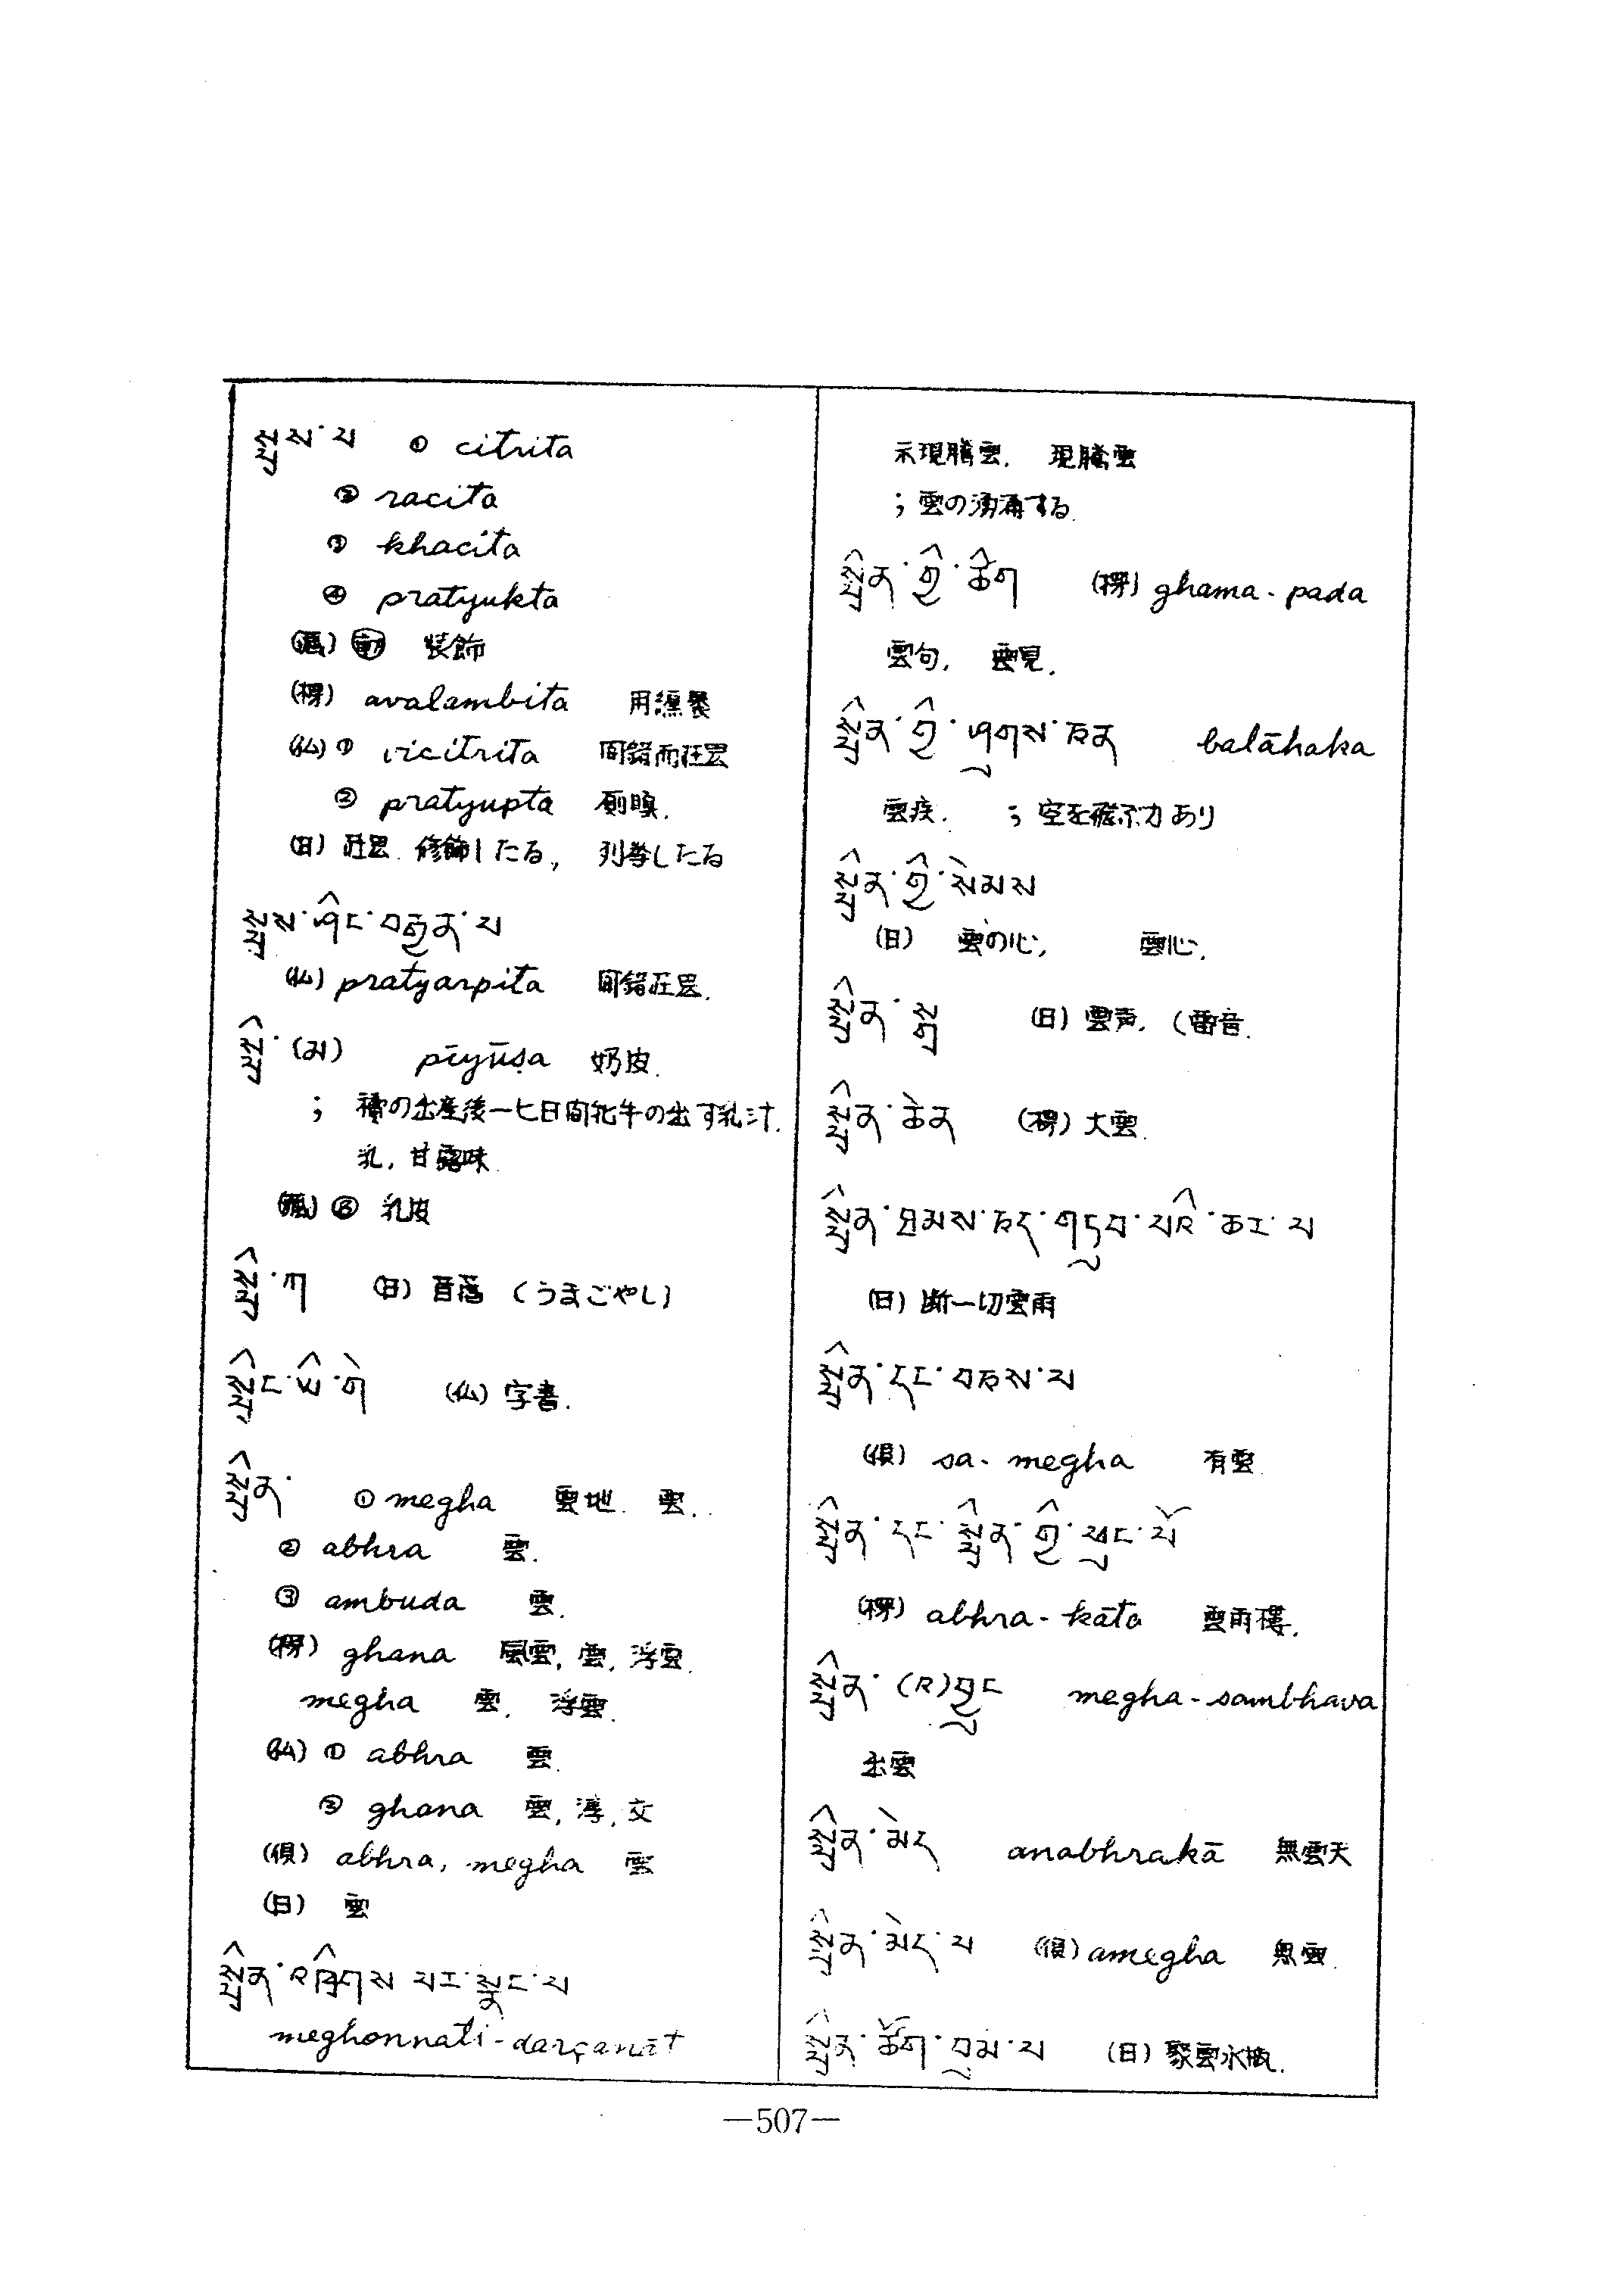 སྤྲས་པ ① citrita
② racita
③ khacita
④ pratyukta
装飾
(楞) avalambita 用纒
(仏) ① vicitrita 間錯而荘厳
② pratyupta
(日) 荘厳. 修飾したる, 列挙したる
སྤྲས་ཤིང་བརྒྱན་པ
(仏) pratyarpita 間錯荘厳.
སྤྲི་(མ) pīyūṣa 奶皮.
; 犢の出産後一七日間牝牛の出す乳汁.
乳, 甘露味.
乳皮
(日) 苜蓿 (うまごやし)
སྤྲིང་ཡི་གེ (仏) 字書.
སྤྲིན་ ① megha 雲地. 雲.
② abhra 雲.
③ ambuda 雲.
(楞) ghana 風雲, 雲, 浮雲.
megha 雲, 浮雲.
(仏) ① abhra 雲.
② ghana 雲, 厚, 文
(倶) abhra, megha 雲
(日) 雲
སྤྲིན་འཁྲིགས་པར་སྣང་པ
meghonnati-darçanāt
示現騰雲, 現騰雲
; 雲の湧涌する.
སྤྲིན་གྱི་ཚིག (楞) ghama-pada
雲句, 雲見.
སྤྲིན་གྱི་ཤུགས་ཅན balāhaka
雲疾. ; 空を飛ぶ力あり
སྤྲིན་གྱི་སེམས
(日) 雲の心, 雲心.
སྤྲིན་སྒྲ (日) 雲声, (雷音.
སྤྲིན་ཆེན (楞) 大雲.
སྤྲིན་ཐམས་ཅད་གཏུབ་པའི་ཆར་པ
(日) 断一切雲雨
སྤྲིན་དང་བཅས་པ
(倶) sa-megha 有雲.
སྤྲིན་དང་སྤྲིན་གྱི་ཕུང་པོ
(楞) abhra-kāta 雲雨
སྤྲིན་(འ)བྱུང megha-sambhava
出雲
སྤྲིན་མེད anabhrakā 無雲天
སྤྲིན་མེད་པ (倶) amegha 無雲.
སྤྲིན་ཚོག་བུམ་པ (日) 聚雲水瓶.
—507—